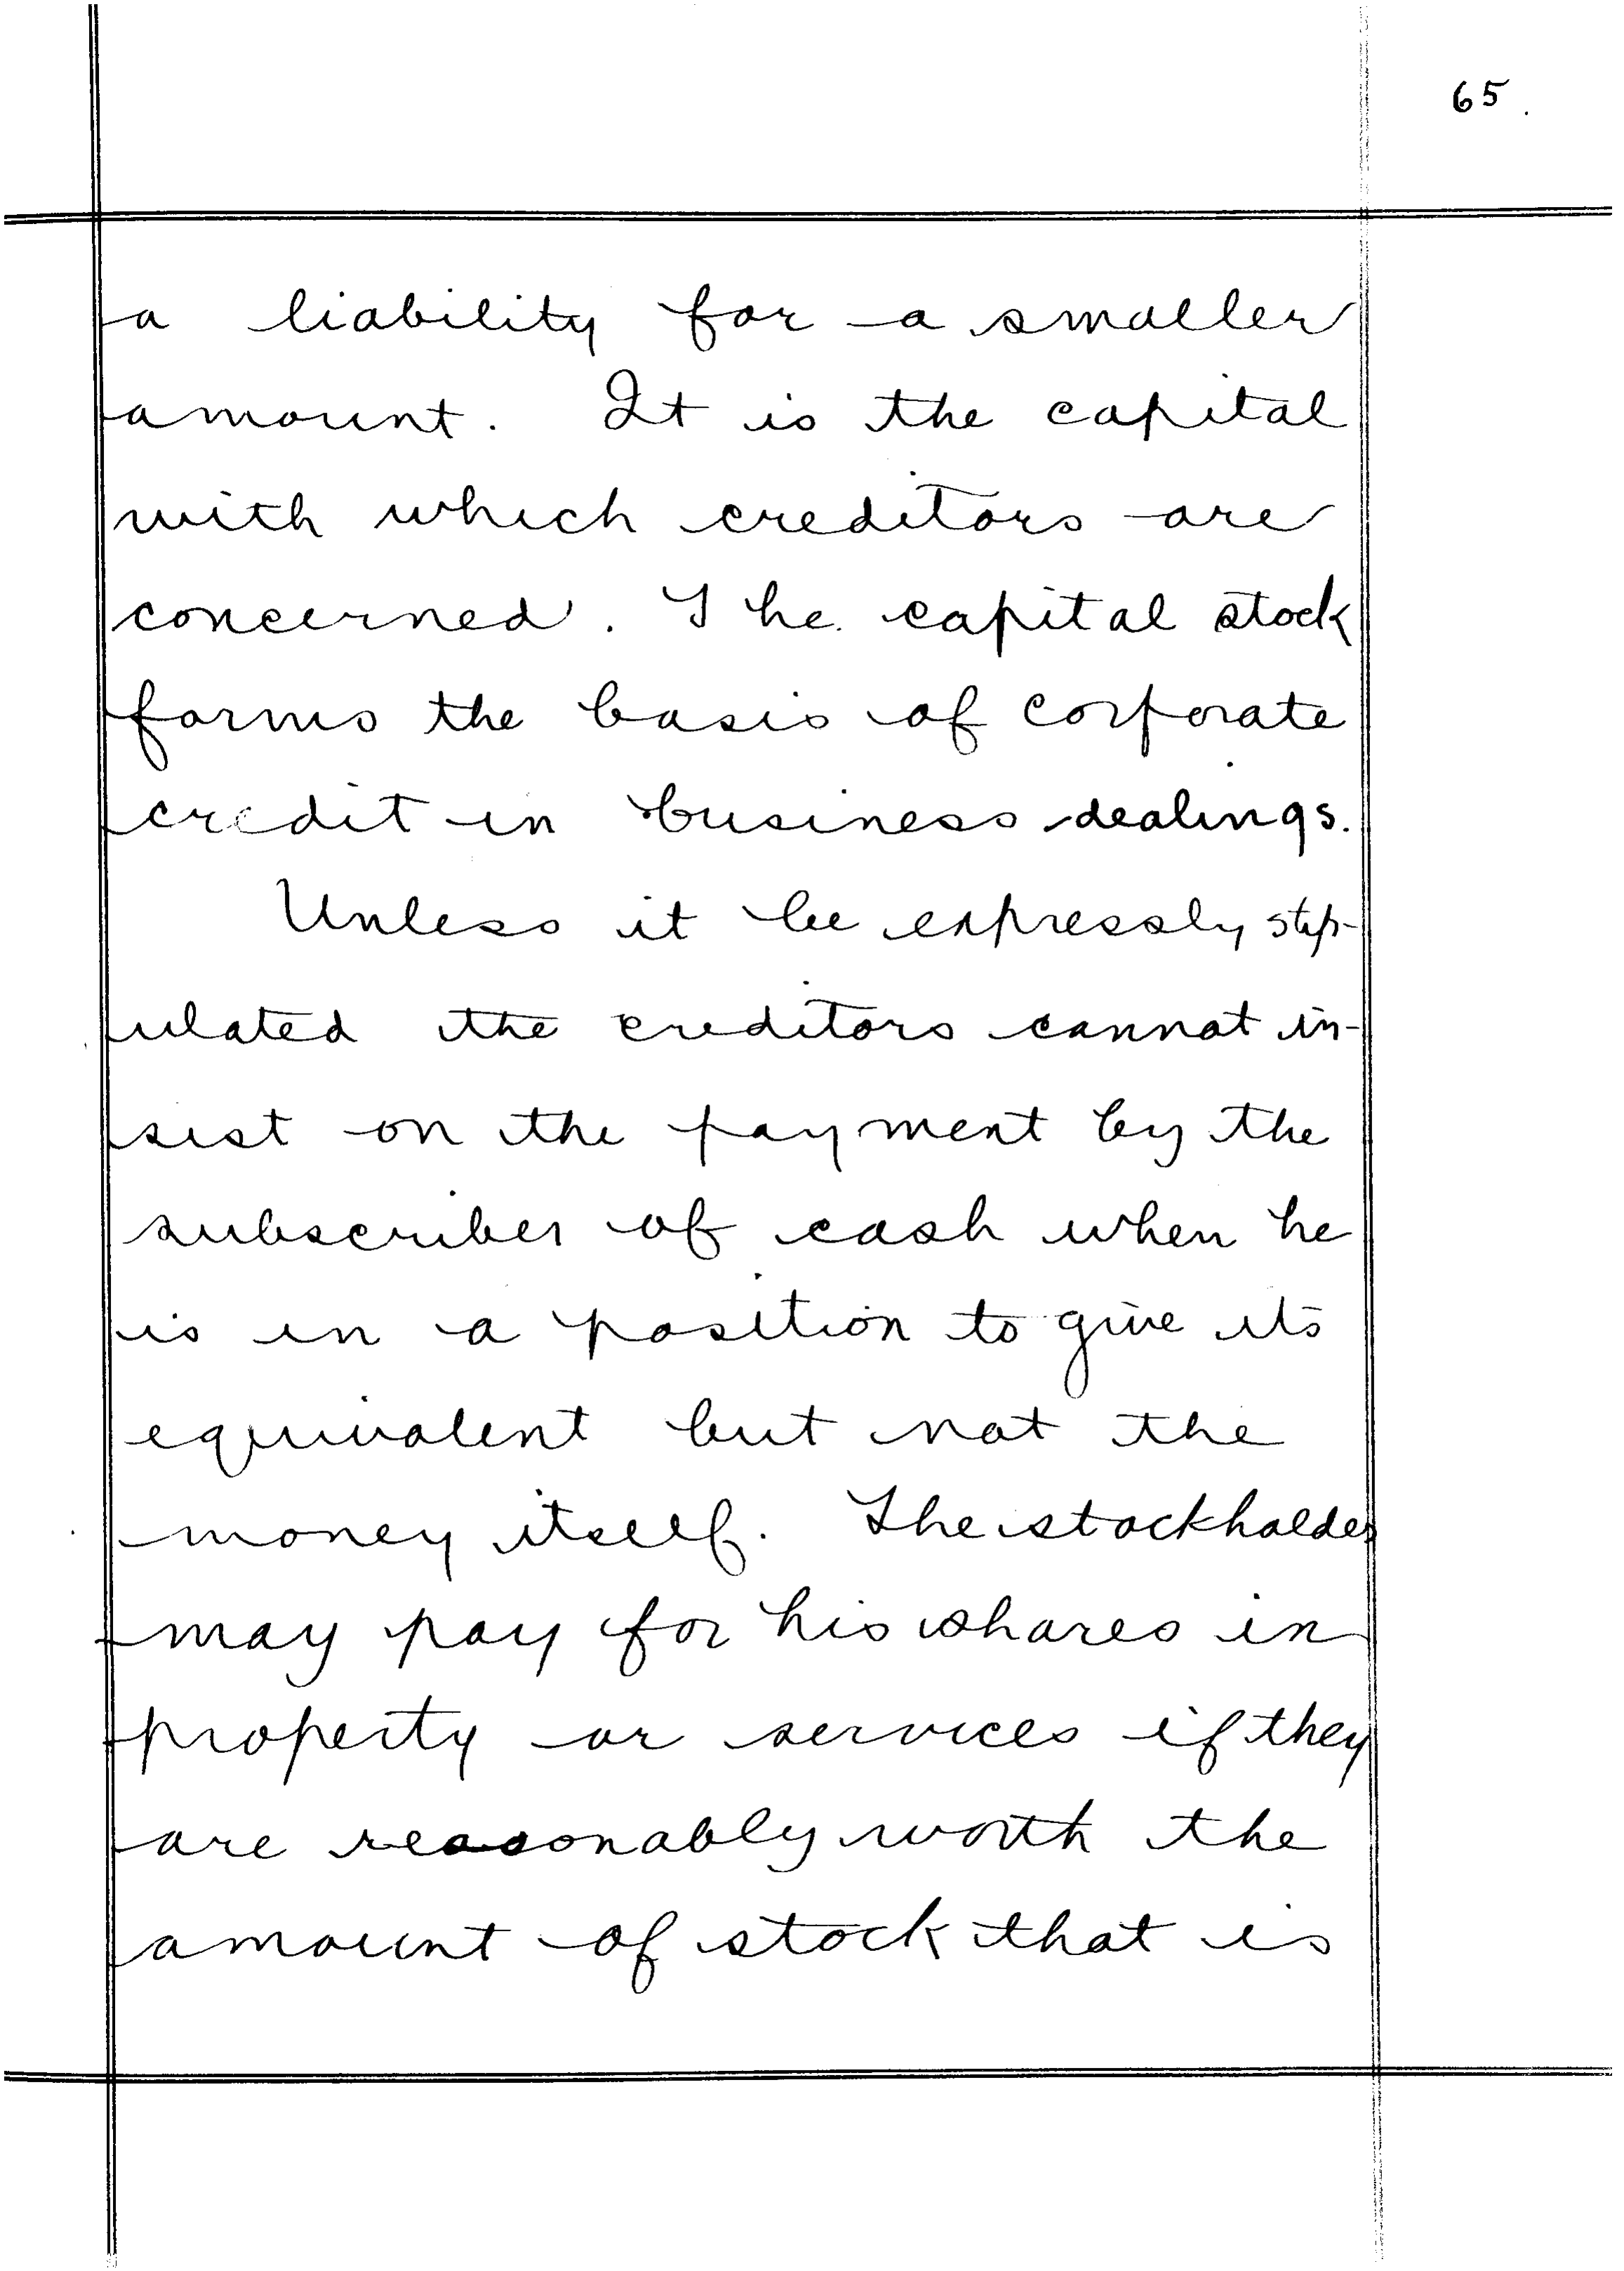 65.
a liability for a smaller
amount. It is the capital
with which creditors are
concerned. The capital stock
forms the basis of corporate
credit in business dealings.
Unless it be expressly stip-
ulated the creditors cannot in-
sist on the payment by the
subscriber of cash when he
is in a position to give its
equivalent but not the
money itself. The stockholder
may pay for his shares in
property or services if they
are reasonably worth the
amount of stock that is